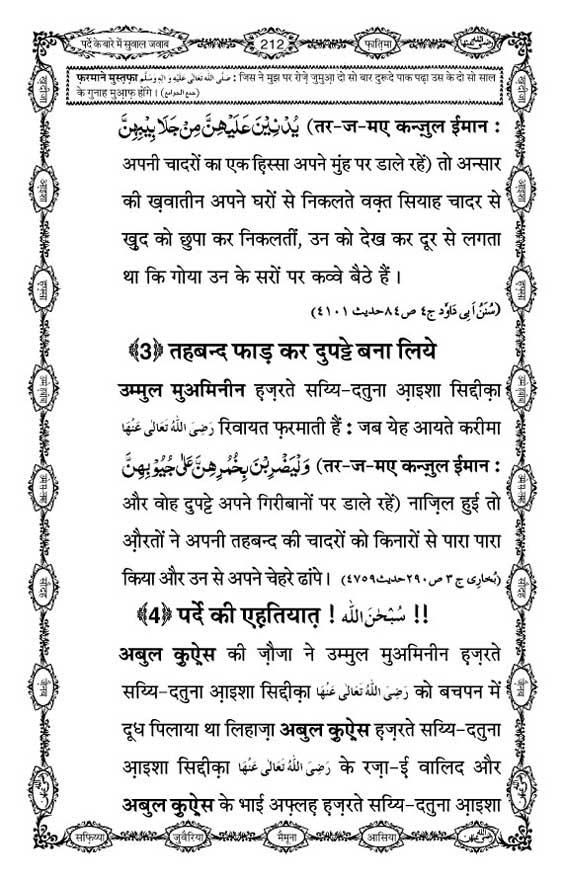 पर्दे के बारे में सुवाल जवाब
212
फ़ातिमा
फ़रमाने मुस्तफ़ा صَلَّى اللهُ تَعَالٰى عَلَيْهِ وَاٰلِهٖ وَسَلَّم : जिस ने मुझ पर रोज़े जुमुआ दो सो बार दुरूदे पाक पढ़ा उस के दो सो साल
के गुनाह मुआ़फ़ होंगे । (جمع الجوامع)
يُدْنِيْنَ عَلَيْهِنَّ مِنْ جَلَابِيْبِهِنَّ (तर-ज-मए कन्ज़ुल ईमान :
अपनी चादरों का एक हिस्सा अपने मुंह पर डाले रहें) तो अन्सार
की ख़वातीन अपने घरों से निकलते वक़्त सियाह चादर से
ख़ुद को छुपा कर निकलतीं, उन को देख कर दूर से लगता
था कि गोया उन के सरों पर कव्वे बैठे हैं ।
(سُنَنُ اَبِي دَاوُد ج٤ ص٨٤ حديث ٤١٠١)
﴾3﴿ तहबन्द फाड़ कर दुपट्टे बना लिये
उम्मुल मुअमिनीन हज़रते सय्यि-दतुना आ़इशा सिद्दीक़ा
رَضِىَ اللهُ تَعَالٰى عَنْهَا रिवायत फ़रमाती हैं : जब येह आयते करीमा
وَلْيَضْرِبْنَ بِخُمُرِهِنَّ عَلٰى جُيُوْبِهِنَّ (तर-ज-मए कन्ज़ुल ईमान :
और वोह दुपट्टे अपने गिरीबानों पर डाले रहें) नाज़िल हुई तो
औ़रतों ने अपनी तहबन्द की चादरों को किनारों से पारा पारा
किया और उन से अपने चेहरे ढांपे । (بُخارى ج ٣ ص ٢٩٠ حديث ٤٧٥٩)
﴾4﴿ पर्दे की एह़तियात़ ! سُبْحٰنَ الله !!
अबुल क़ुऐ़स की ज़ौजा ने उम्मुल मुअमिनीन हज़रते
सय्यि-दतुना आ़इशा सिद्दीक़ा رَضِىَ اللهُ تَعَالٰى عَنْهَا को बचपन में
दूध पिलाया था लिहाज़ा अबुल क़ुऐ़स हज़रते सय्यि-दतुना
आ़इशा सिद्दीक़ा رَضِىَ اللهُ تَعَالٰى عَنْهَا के रज़ा-ई वालिद और
अबुल क़ुऐ़स के भाई अफ़्लह़ हज़रते सय्यि-दतुना आ़इशा
सफ़िय्या
जुवैरिया
मैमूना
आसिया